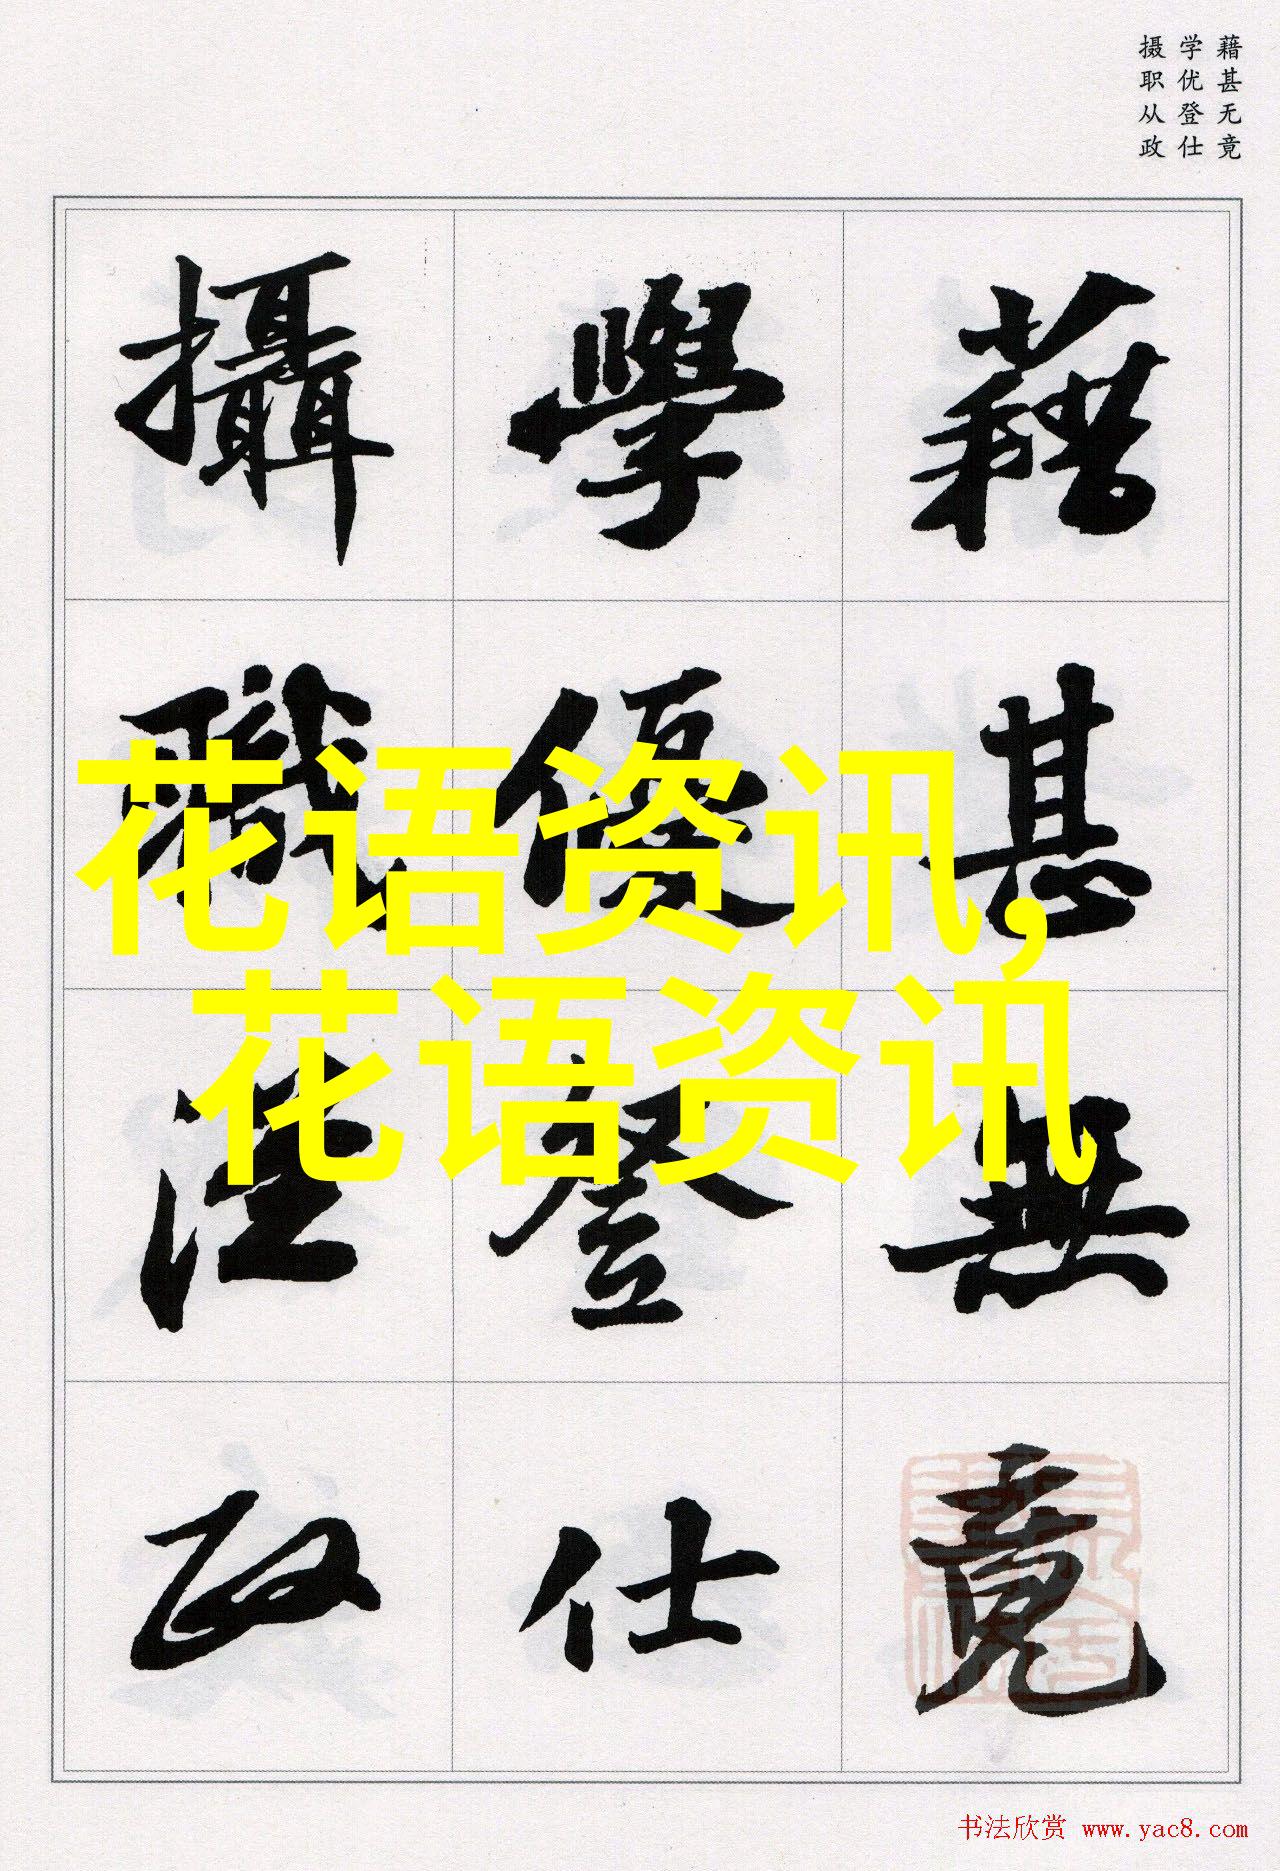 藉甚无竟
学优登仕
摄职从政
藉甚無竟
學優登仕
攝職從政
花语资讯,
花语资讯
书法欣赏 www.yac8.com